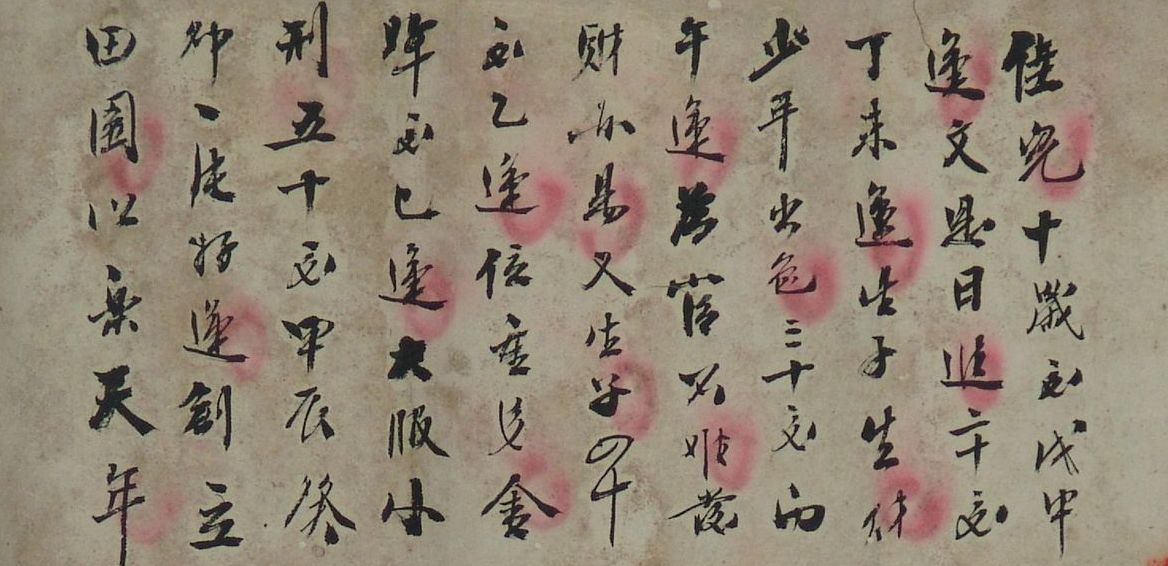 完十歲交戊申
運文思日進二十交
丁未運生子生財
此年出色三十交丙
午運為官不順發
財亦易又生子四十
交乙運倍重舍
交巳運大服小
刑五十交甲辰癸
卯一好運創立
田園以樂天年